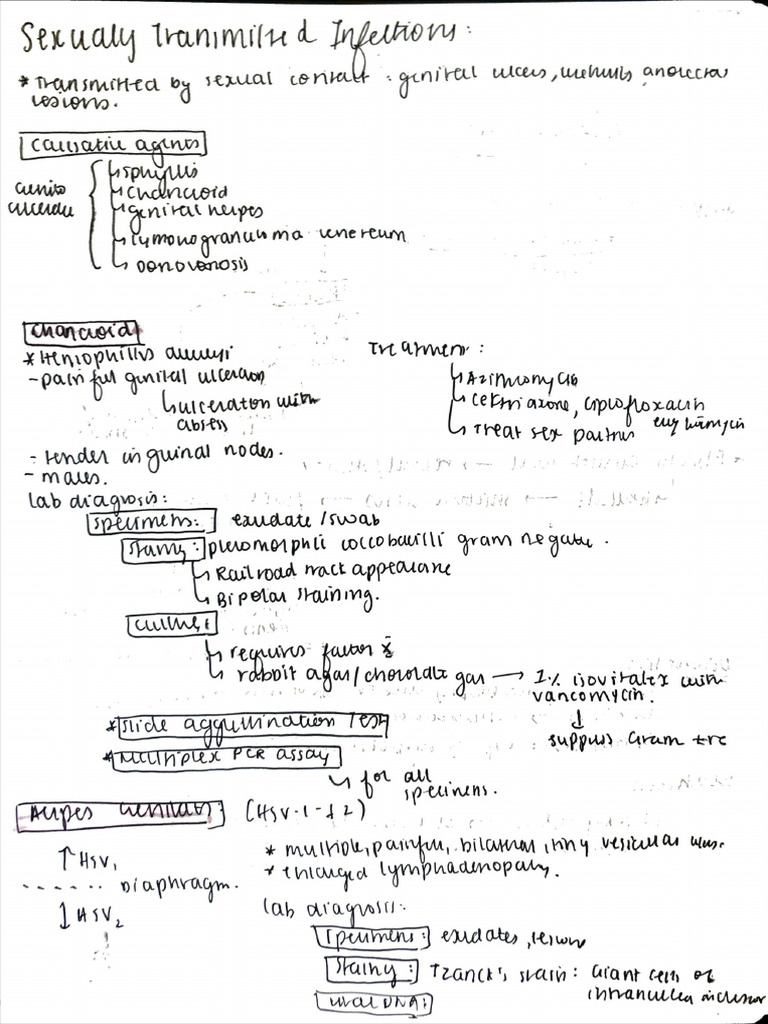 Sexualy Transmitted Infections:
* Transmitted by sexual contact : genital ulcers, urethritis, anorectal
lesions.
Causative agents
Genito
ulcerative
syphilis
Chancroid
genital herpes
lymphogranuloma venereum
Donovonosis
Chancroid
* Hemophillus ducreyi
- painful genital ulceration
ulceration with
abscess
- tender inguinal nodes.
- males.
Treatment :
Azithromycin
Ceftriaxone, ciprofloxacin
erythromycin
Treat sex partner
lab diagnosis:
specimens: exudate / swab
staining: pleomorphic coccobacilli gram negative.
Railroad track appearance
Bipolar staining.
culture:
requires factor X
rabbit agar/chocolate agar → 1% isovitalex with
vancomycin.
↓
suppress Gram +ve
* Slide agglutination Test
* Multiplex PCR assay
for all
specimens.
Herpes Genitalis: (HSV-1 + 2)
↑ HSV1
------ Diaphragm.
↓ HSV2
* multiple, painful, bilateral, tiny vesicular ulcers.
* Enlarged lymphadenopathy.
lab diagnosis:
Specimens: exudates, lesions
Staining: Tzanck's stain: Giant cells of
intranuclear inclusion
viral DNA: